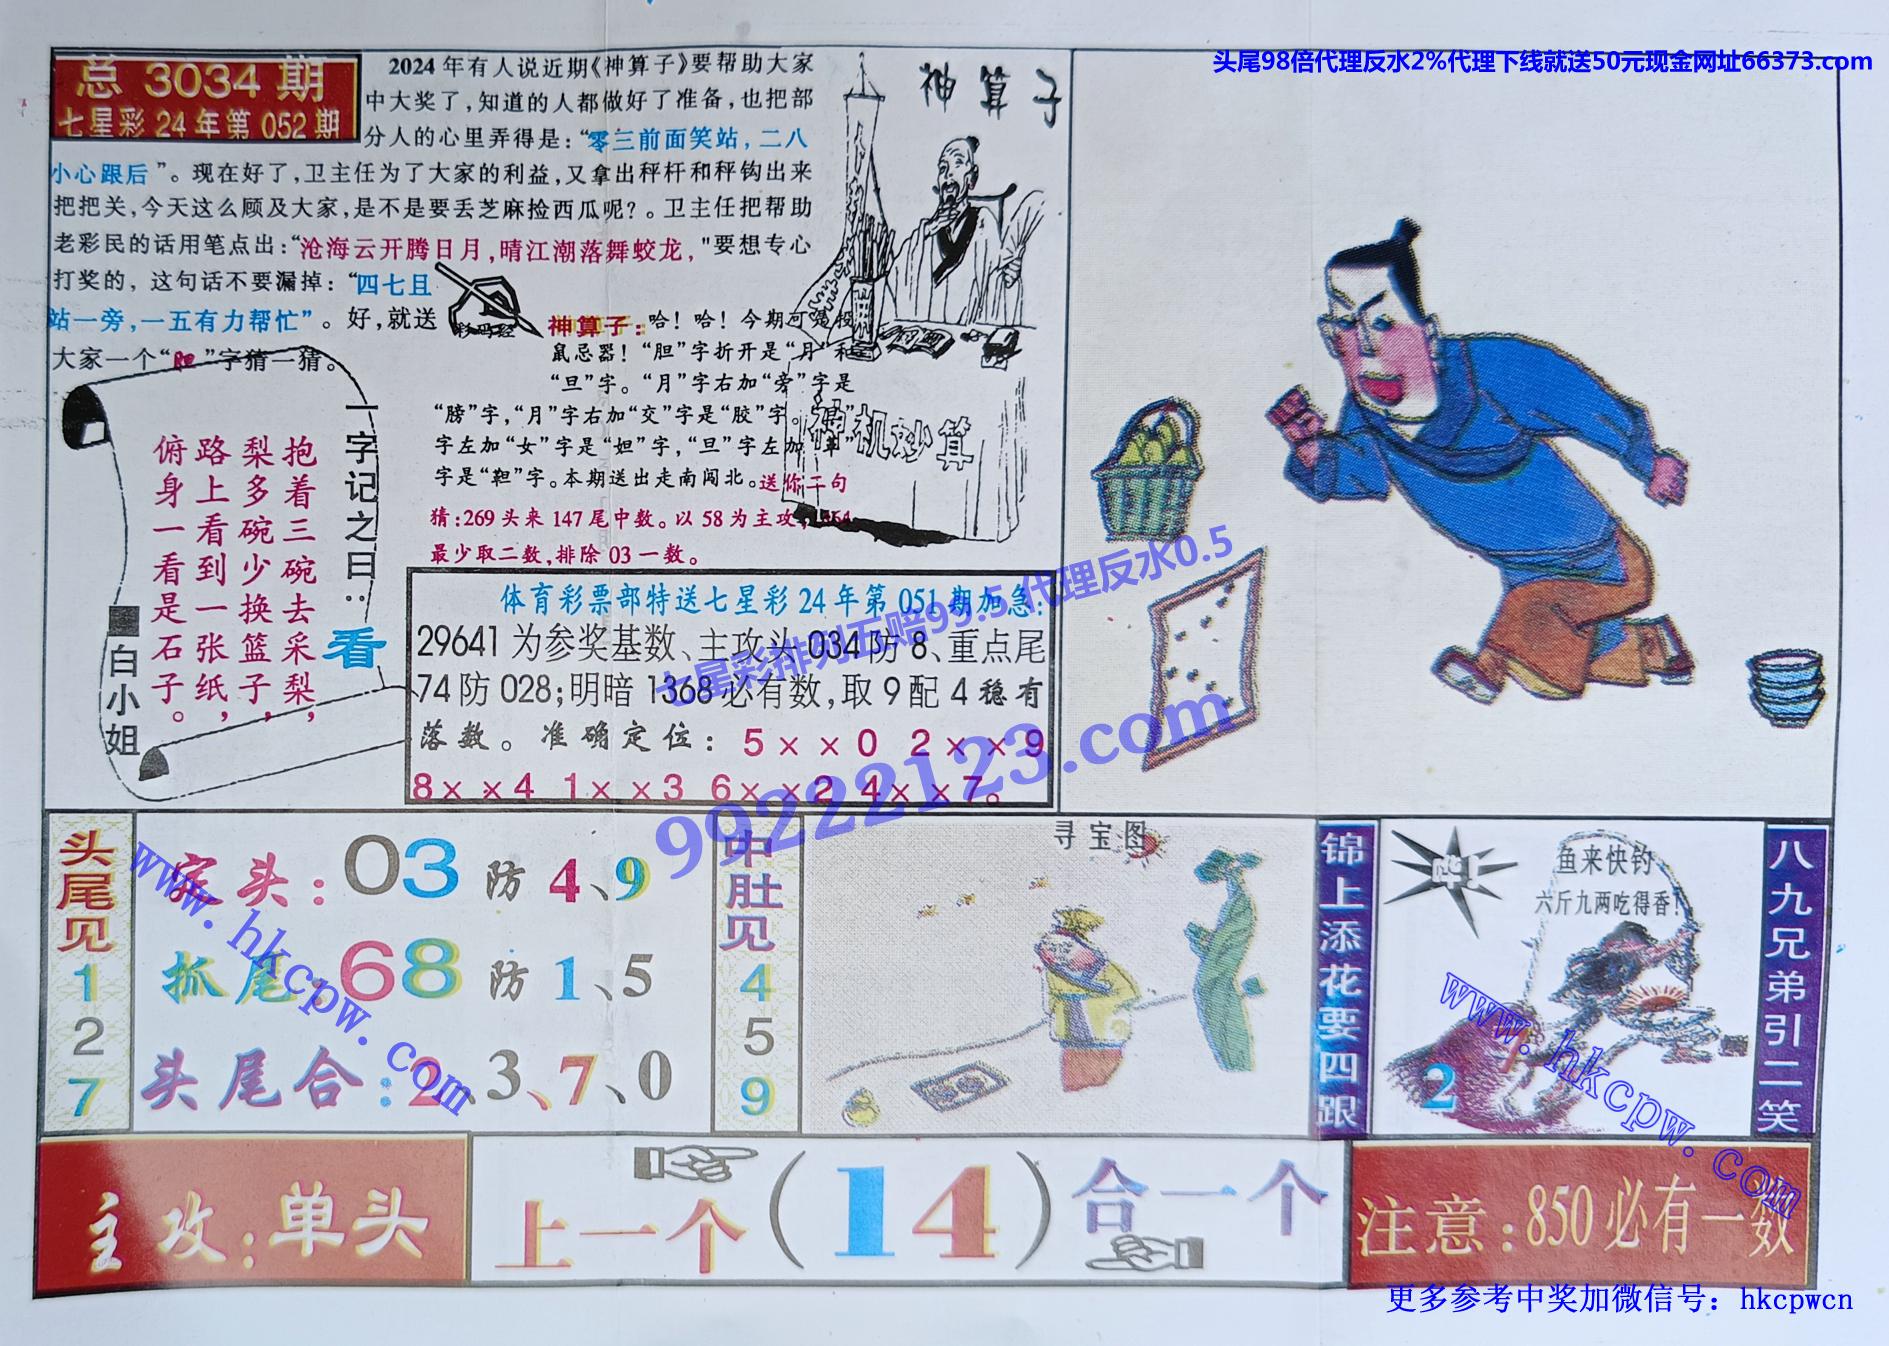 头尾98倍代理反水2%代理下线就送50元现金网址66373.com
总 3034 期
七星彩 24 年第 052 期
2024 年有人说近期《神算子》要帮助大家
中大奖了,知道的人都做好了准备,也把部
分人的心里弄得是:“零三前面笑站,二八
小心跟后”。现在好了,卫主任为了大家的利益,又拿出秤杆和秤钩出来
把把关,今天这么顾及大家,是不是要丢芝麻捡西瓜呢?。卫主任把帮助
老彩民的话用笔点出:“沧海云开腾日月,晴江潮落舞蛟龙,"要想专心
打奖的, 这句话不要漏掉: “四七且
站一旁,一五有力帮忙”。好,就送
大家一个“胆”字猜一猜。
彩码经
神算子
神算子:哈! 哈! 今期可是投
鼠忌器! “胆”字折开是“月”和
“旦”字。“月”字右加“旁”字是
“膀”字,“月”字右加“交”字是“胶”字。
字左加“女”字是“妲”字,“旦”字左加“革”
字是“靼”字。本期送出走南闯北。送你二句
猜:269 头来 147 尾中数。以 58 为主攻,
最少取二数,排除 03 一数。
神机妙算
一字记之曰:
看
抱着三碗去采梨,
梨多碗少换篮子,
路上看到一张纸,
俯身一看是石子。
白小姐
体育彩票部特送七星彩 24 年第 051 期加急:
29641 为参奖基数、主攻头 034 防 8、重点尾
74 防 028;明暗 1368 必有数,取 9 配 4 稳有
落数。准确定位: 5××0 2××9
8××4 1××3 6××2 4××7。
七星彩排列五赔99.5 代理反水0.5
99222123.com
头尾见
1
2
7
定头:03 防 4、9
抓尾:68 防 1、5
头尾合:2、3、7、0
www.hkcpw.com
中肚见
4
5
9
寻宝图
锦上添花要四跟
鱼来快钓
六斤九两吃得香!
2
www.hkcpw.com
八九兄弟引二笑
主攻:单头
上一个(14)合一个
注意:850 必有一数
更多参考中奖加微信号:hkcpwcn